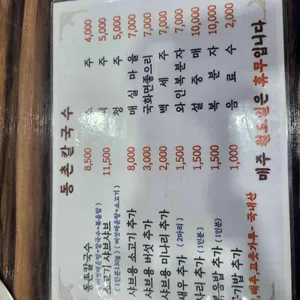 동촌칼국수
동촌칼국수 8,500
소고기 샤브샤브 11,500
샤브용 소고기 추가 8,000
샤브용 버섯 추가 3,000
샤브용 미나리 추가 2,000
새우 추가 (2마리) 1,500
사리 추가 (1인분) 1,500
볶음밥 추가 (1인분) 1,500
공기밥 추가 1,000
소주 4,000
맥주 5,000
청하 5,000
매실마을 7,000
국화면좋으리 7,000
백세주 7,000
와인복분자 10,000
설중매 10,000
복분자 10,000
음료수 2,000
매주 월요일은 휴무입니다
배추·고춧가루·국내산